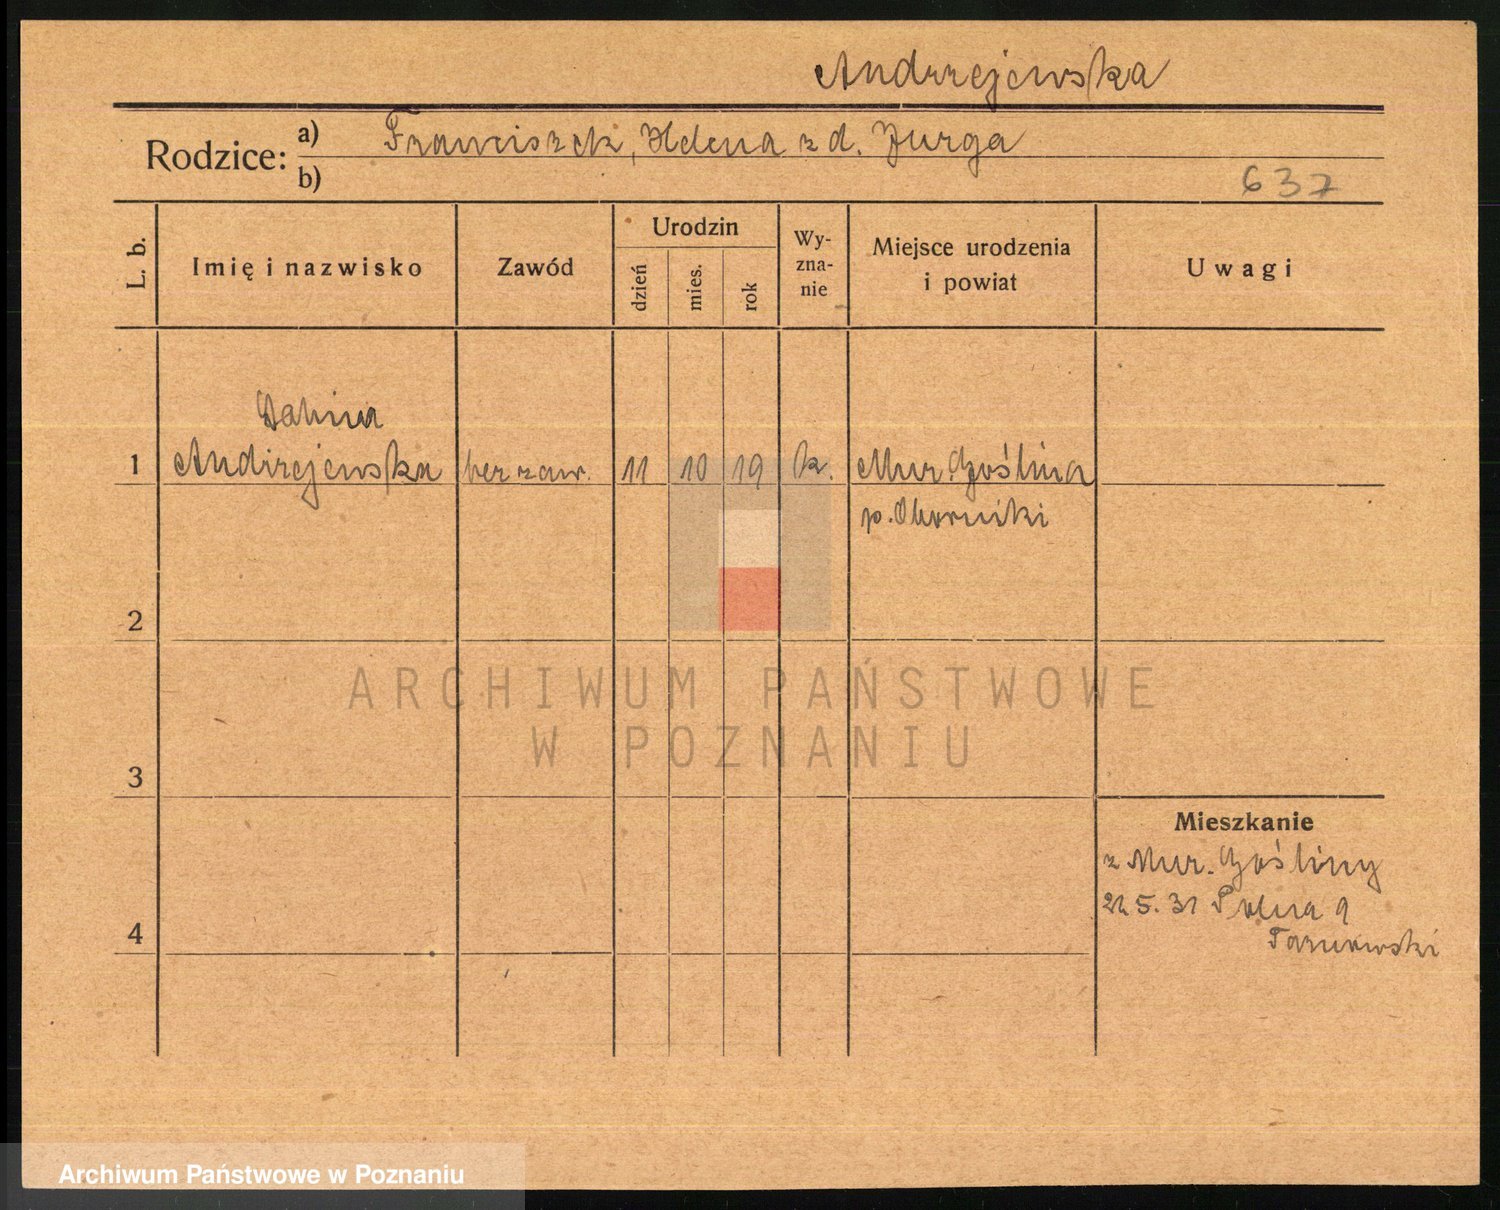 Andrzejewska
Rodzice: a) Franciszek, Helena z d. Jurga
b)
637
L. b.
Imię i nazwisko
Zawód
Urodzin
dzień
mies.
rok
Wy-
zna-
nie
Miejsce urodzenia
i powiat
Uwagi
Andrzejewska bez zaw. 11 10 19 k. Mur. Goślina
1
p. Oborniki
2
ARCHIWUM PAŃSTWOWE
W POZNANIU
3
Mieszkanie
z Mur. Gośliny
5. 31 Polna 9
4
Archiwum Państwowe w Poznaniu